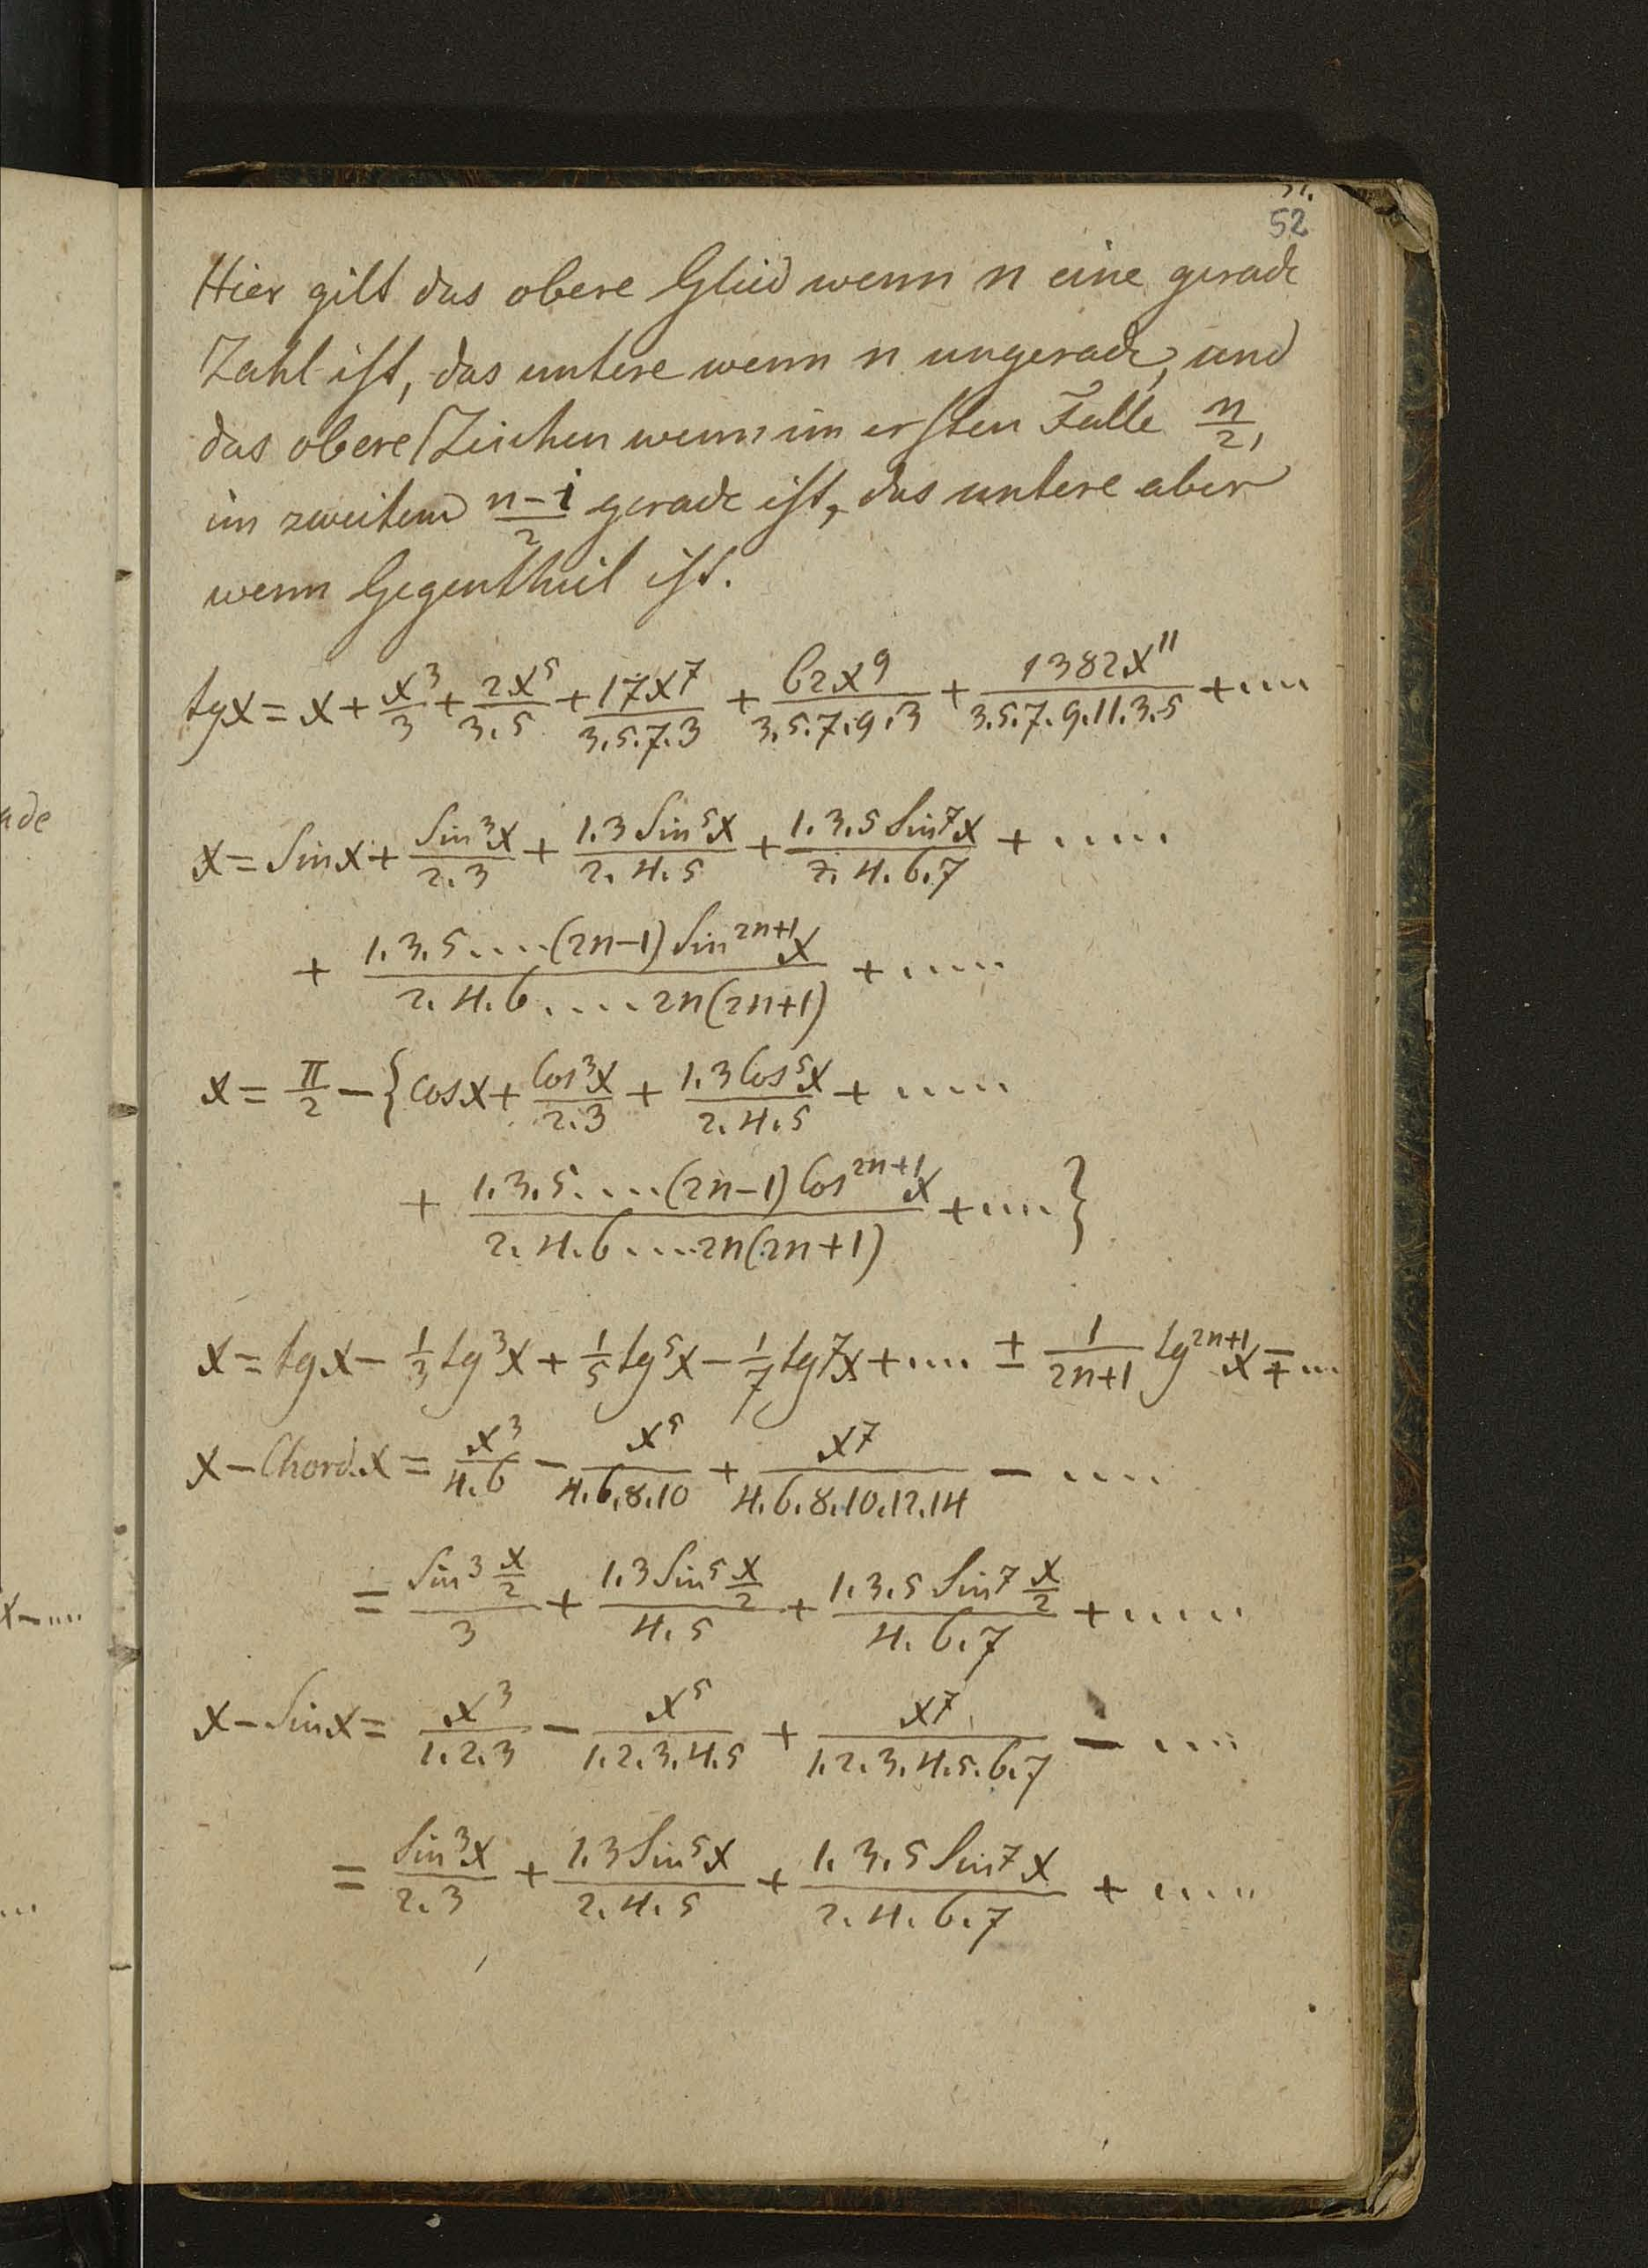 52
Hier gilt das obere Glied wenn n eine gerade
Zahl ist, das untere wenn n ungerade, und
das obere Zeichen wenn im ersten Falle n/2,
im zweitem (n-1)/2 gerade ist, das untere aber
wenn Gegentheil ist.
tgx = x + x³/3 + 2x⁵/3.5 + 17x⁷/3.5.7.3 + 62x⁹/3.5.7.9.3 + 1382x¹¹/3.5.7.9.11.3.5 + ....
x = Sinx + Sin³x/2.3 + 1.3 Sin⁵x/2.4.5 + 1.3.5 Sin⁷x/2.4.6.7 + .....
+ 1.3.5....(2n-1) Sin²ⁿ⁺¹x/2.4.6....2n(2n+1) + .....
x = π/2 - {Cosx + Cos³x/2.3 + 1.3 Cos⁵x/2.4.5 + .....
+ 1.3.5....(2n-1) Cos²ⁿ⁺¹x/2.4.6....2n(2n+1) + ....}
x = tgx - 1/3 tg³x + 1/5 tg⁵x - 1/7 tg⁷x + .... ± 1/(2n+1) tg²ⁿ⁺¹x ∓ ...
x - Chord.x = x³/4.6 - x⁵/4.6.8.10 + x⁷/4.6.8.10.12.14 - ....
= Sin³ x/2/3 + 1.3 Sin⁵ x/2/4.5 + 1.3.5 Sin⁷ x/2/4.6.7 + .....
x - Sinx = x³/1.2.3 - x⁵/1.2.3.4.5 + x⁷/1.2.3.4.5.6.7 - ....
= Sin³x/2.3 + 1.3 Sin⁵x/2.4.5 + 1.3.5 Sin⁷x/2.4.6.7 + .....